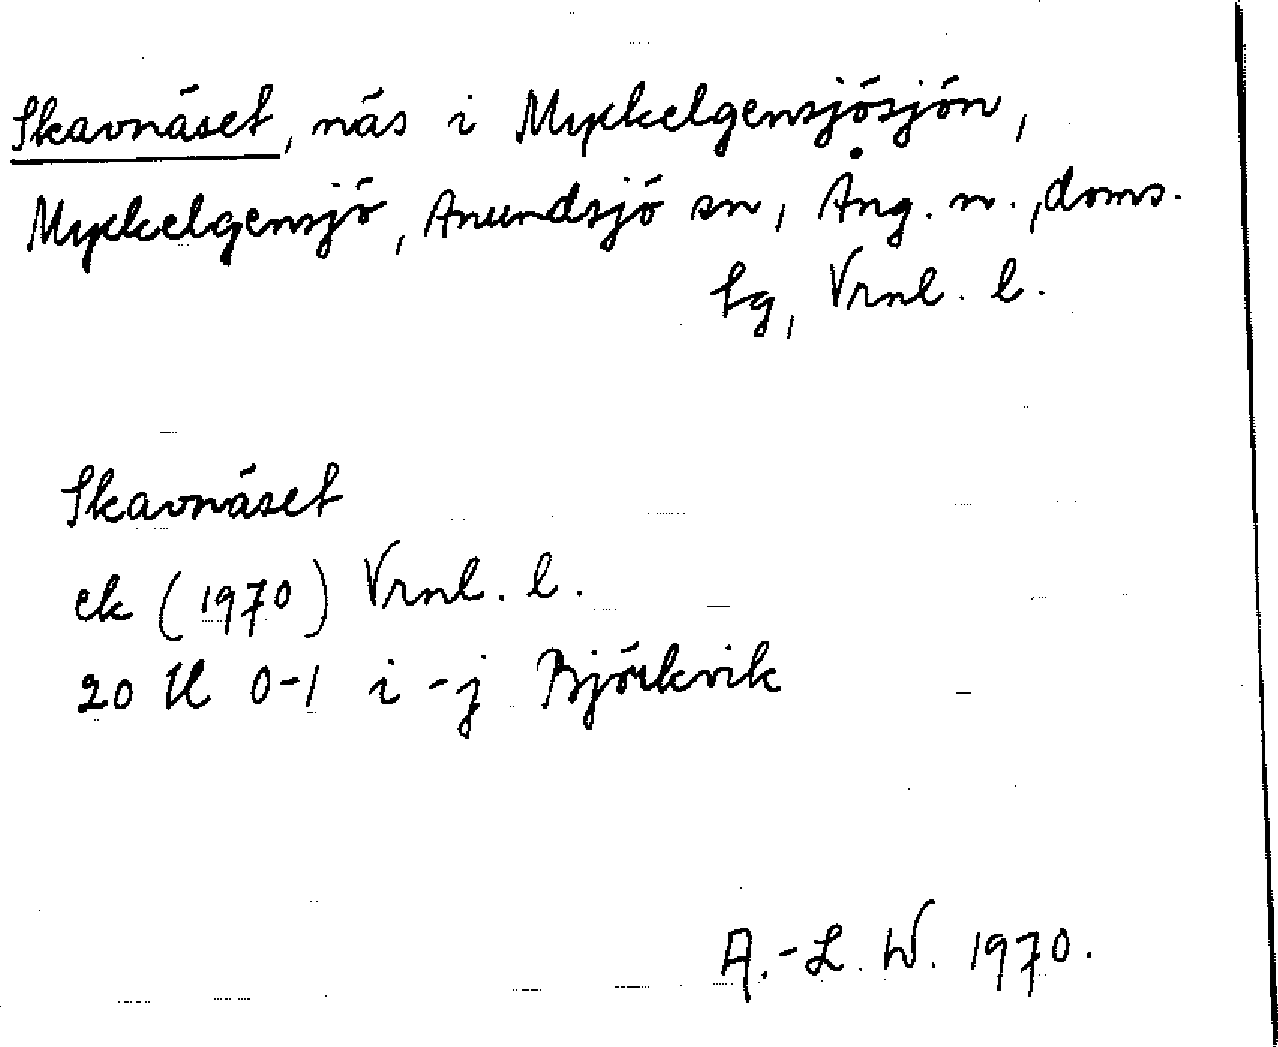 Skavnäset, näs i Myckelgensjösjön,
Myckelgensjö, Anundsjö sn, Ång. n., doms.
lg, Vrnl. l.
Skavnäset
ek (1970) Vrnl. l.
20 H 0-1 i-j Björkvik
A.-L. W. 1970.